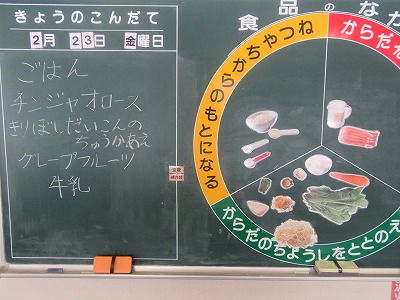 きょうのこんだて
2月 23日 金曜日
ごはん
チンジャオロース
きりぼしだいこんの
ちゅうかあえ
グレープフルーツ
牛乳
食品のなか
らかちゃつね
のもとになる
からだね
からだのちょうしをととのえ